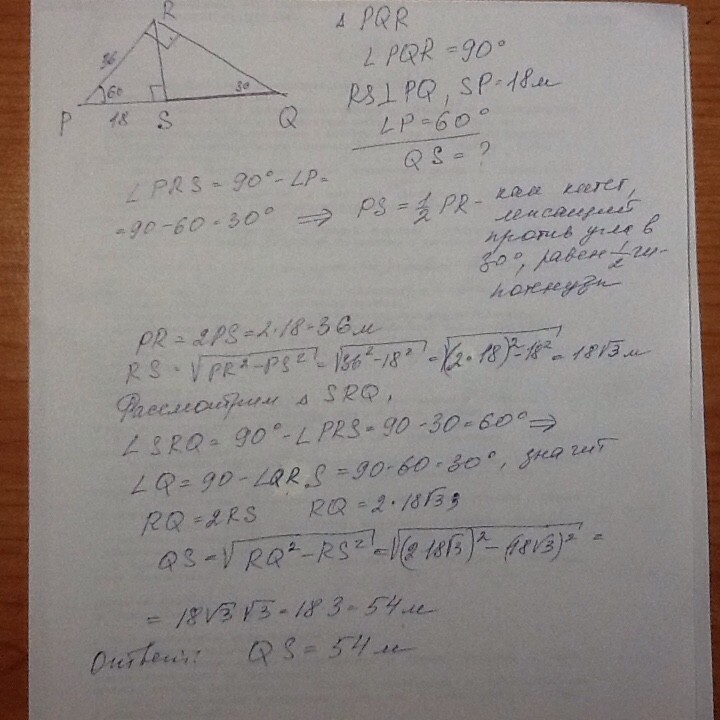 R
36
60
30
P
18
S
Q
Δ PQR
∠PQR = 90°
RS⊥PQ, SP = 18м
∠P = 60°
QS = ?
∠PRS = 90° - ∠P =
= 90 - 60 = 30° ⇒ PS = 1/2 PR - как катет,
лежащий
против угла в
30°, равен 1/2 ги-
потенузы
PR = 2PS = 2·18 = 36м
RS = √(PR² - PS²) = √(36² - 18²) = √((2·18)² - 18²) = 18√3 м
Рассмотрим Δ SRQ,
∠SRQ = 90° - ∠PRS = 90 - 30 = 60° ⇒
∠Q = 90 - ∠QRS = 90 - 60 = 30°, значит
RQ = 2RS RQ = 2·18√3
QS = √(RQ² - RS²) = √((2·18√3)² - (18√3)²) =
= 18√3 √3 = 18·3 = 54м
Ответ: QS = 54м